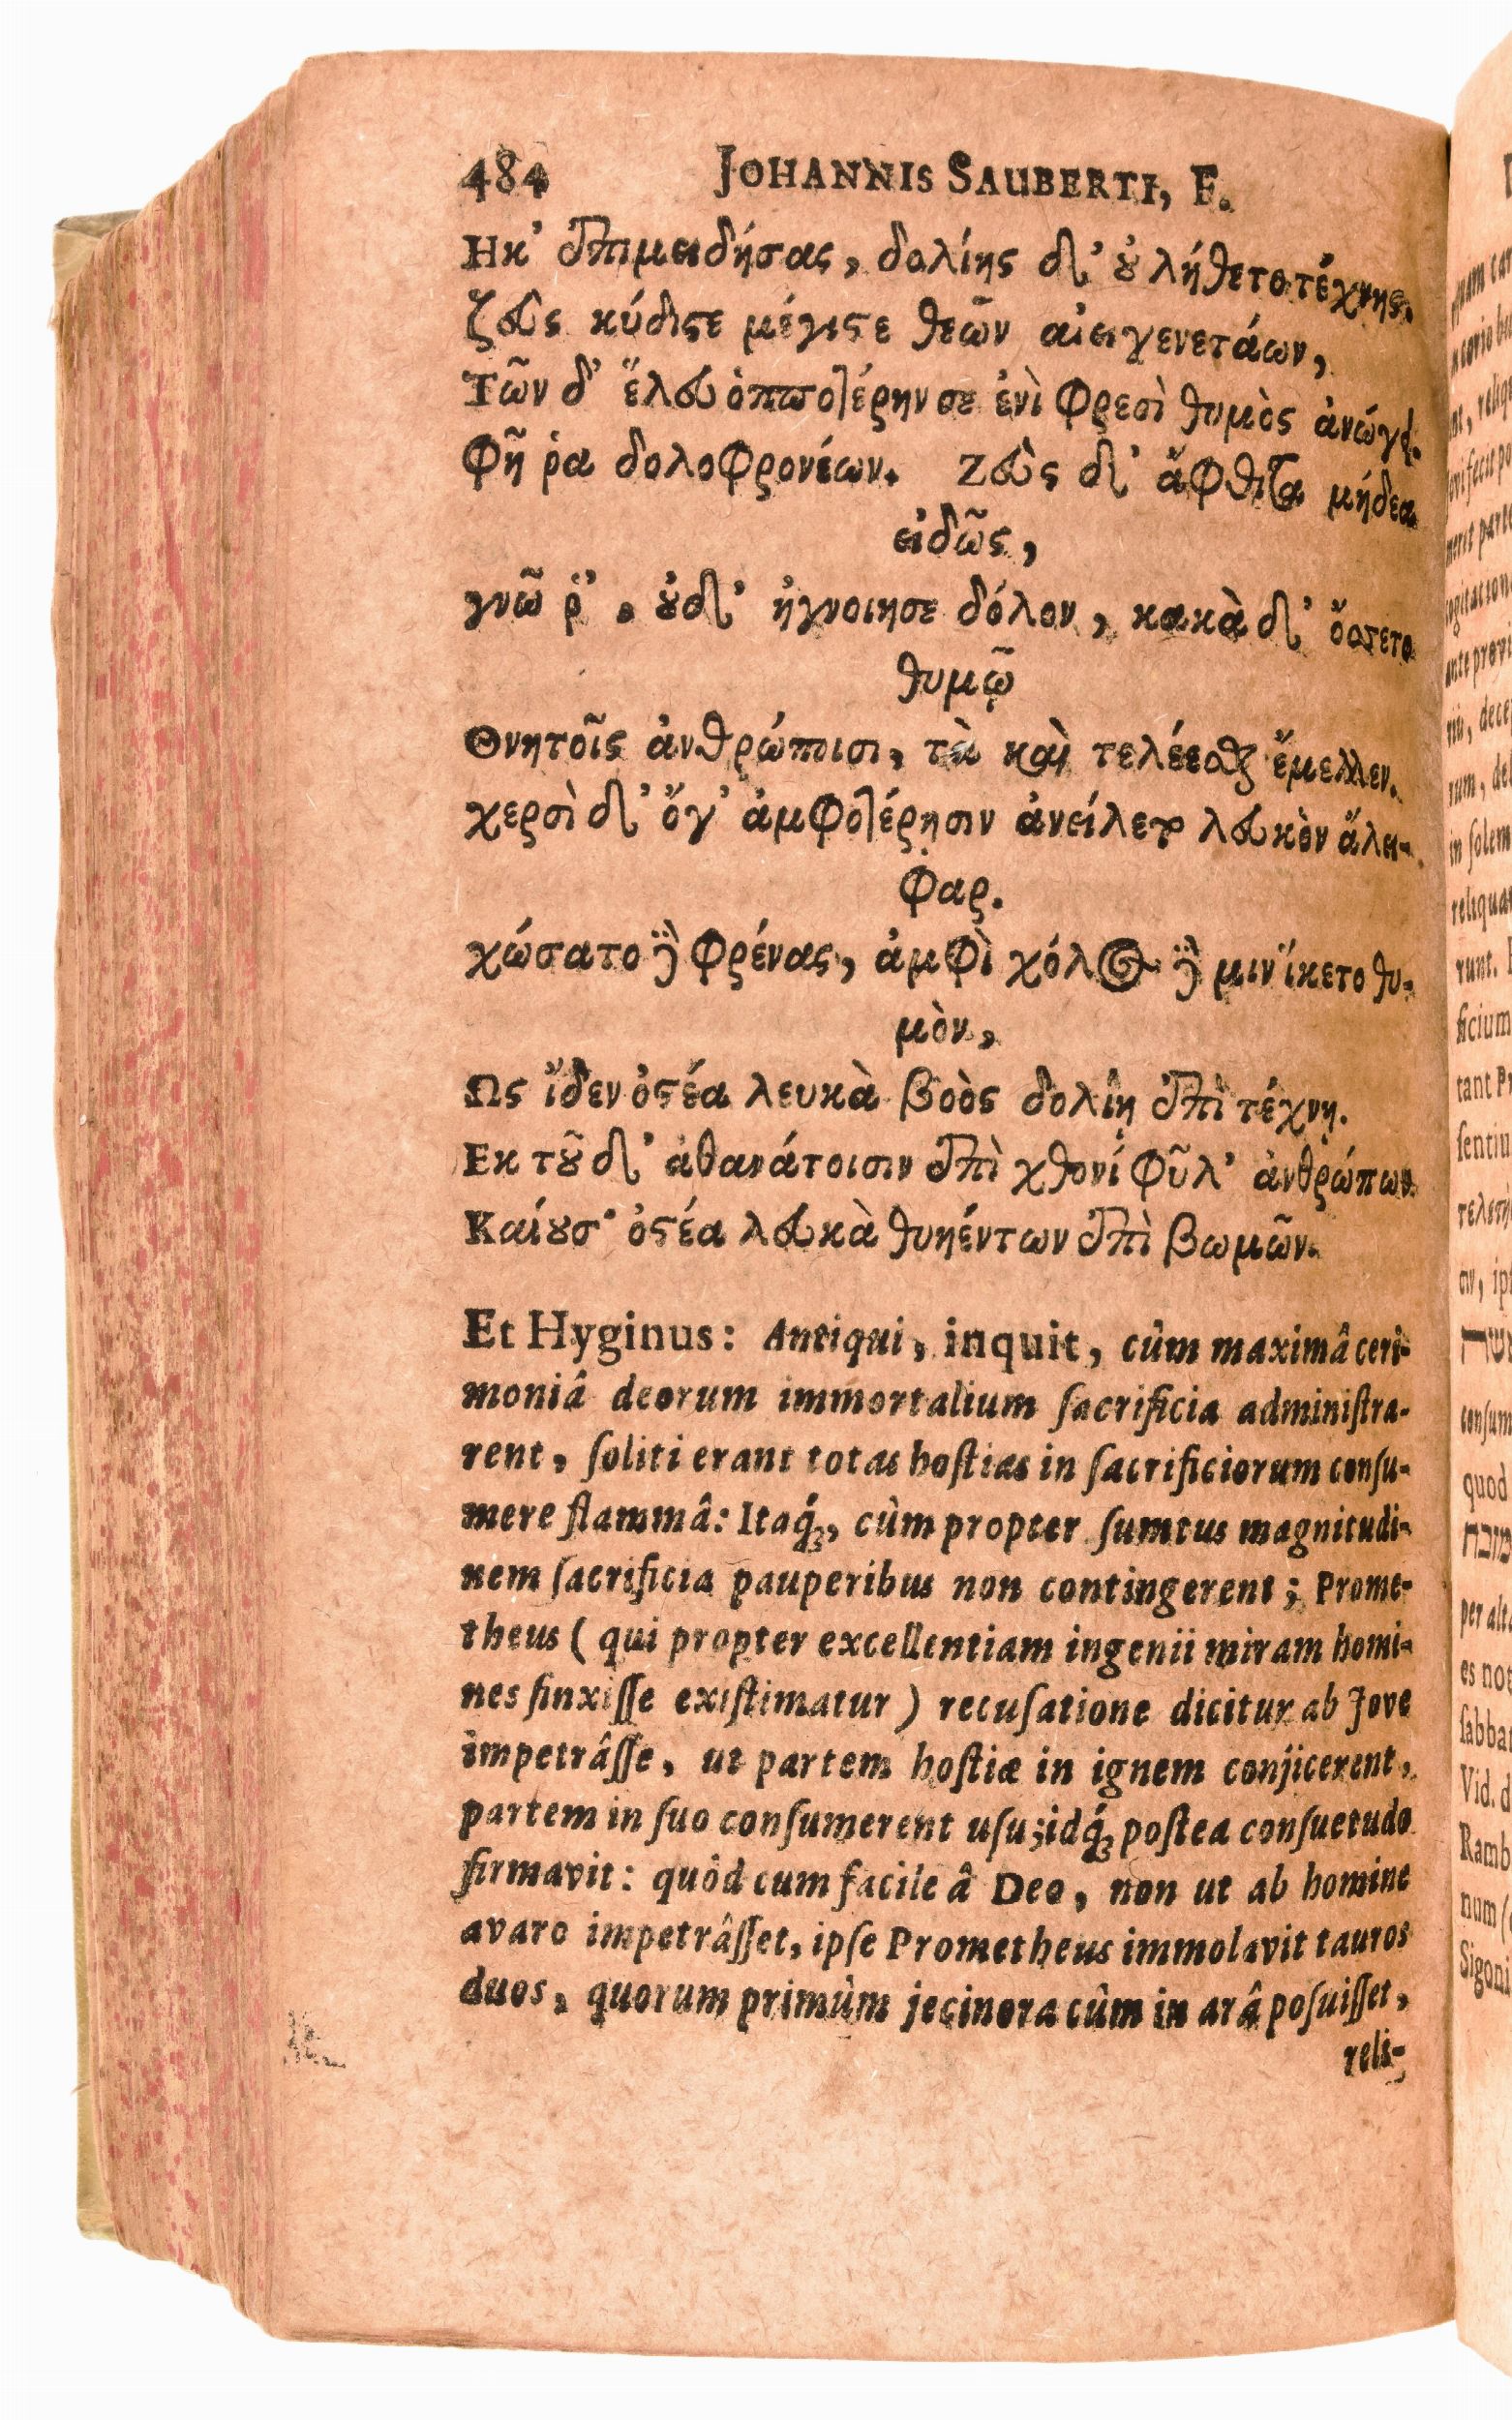 484 JOHANNIS SAUBERTI, F.
Ηκ᾽ ἐπιμειδήσας, δολίης δ᾽ ȣ̓ λήθετο τέχνης.
ζεῦς κύδιϛε μέγιϛε θεῶν αἰειγενετάων,
Τῶν δ᾽ ἕλευ ὁπποτέρην σε ἐνὶ φρεσὶ θυμὸς ἀνώγει.
Φῆ ῥα δολοφρονέων. Ζεὺς δ᾽ ἄφθιτα μήδεα
εἰδῶς,
γνῶ ῥ᾽, ȣ̓δ᾽ ἠγνοιησε δόλον, κακὰ δ᾽ ὄσσετο
θυμῷ
Θνητοῖς ἀνθρώποισι, τὰ καὶ τελέεσθαι ἔμελλεν.
χερσὶ δ᾽ ὅγ᾽ ἀμφοτέρησιν ἀνείλετο λευκὸν ἄλει-
φαρ.
χώσατο δὲ φρένας, ἀμφὶ χόλος δὲ μιν ἵκετο θυ-
μὸν,
Ως ἴδεν ὀϛέα λευκὰ βοὸς δολίῃ ἐπὶ τέχνῃ.
Εκ τȣ͂ δ᾽ ἀθανάτοισιν ἐπὶ χθονὶ φῦλ᾽ ἀνθρώπων
Καίȣσ᾽ ὀϛέα λευκὰ θυηέντων ἐπὶ βωμῶν.
Et Hyginus: Antiqui, inquit, cùm maximâ ceri-
moniâ deorum immortalium ſacrificia adminiſtra-
rent, ſoliti erant totas hoſtias in ſacrificiorum conſu-
mere flammâ: Itaq́;, cùm propter ſumtus magnitudi-
nem ſacrificia pauperibus non contingerent; Prome-
theus ( qui propter excellentiam ingenii miram homi-
nes finxiſſe exiſtimatur ) recuſatione dicitur ab Jove
impetrâſſe, ut partem hoſtiæ in ignem conjicerent,
partem in ſuo conſumerent uſu; idq́; poſtea conſuetudo
firmavit: quòd cum facile â Deo, non ut ab homine
avaro impetrâſſet, ipſe Prometheus immolavit tauros
duos, quorum primùm jecinora cùm in arâ poſuiſſet,
reli-